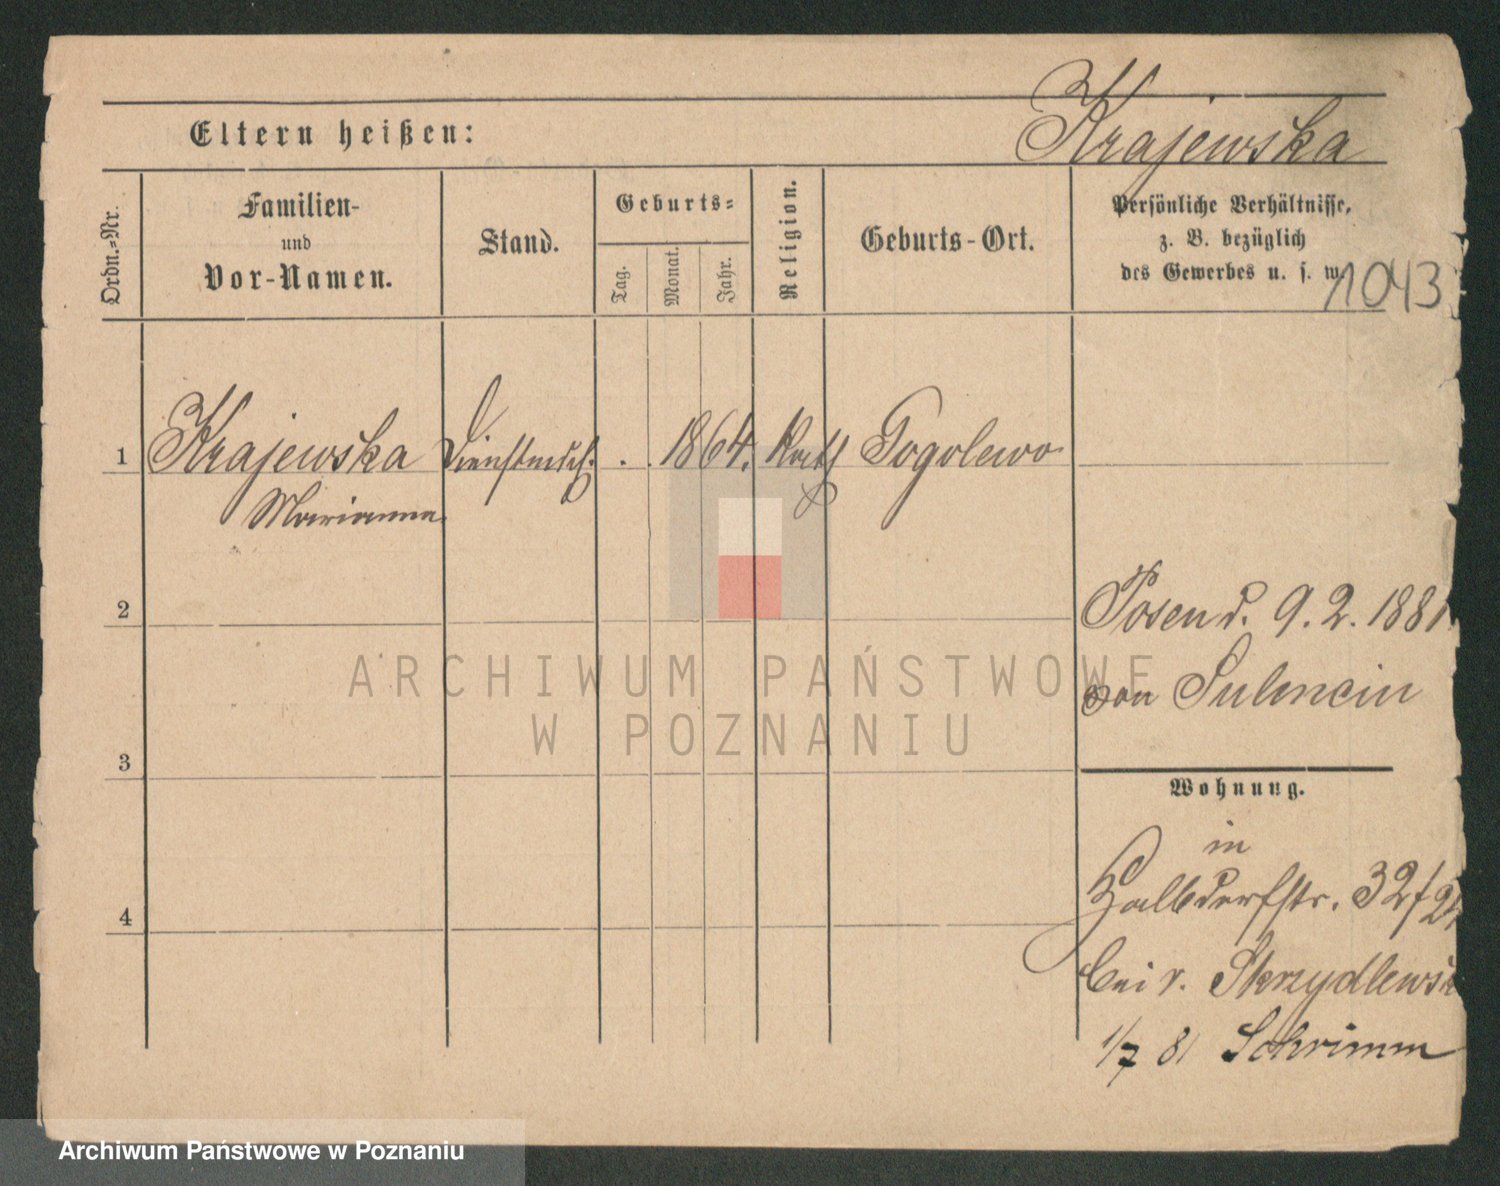 Krajewska
Eltern heißen:
Ordn.=Nr.
Familien-
und
Vor-Namen.
Stand.
Geburts=
Tag.
Monat.
Jahr.
Religion.
Geburts-Ort.
Persönliche Verhältnisse,
z. B. bezüglich
des Gewerbes u. s. w.
1043
1 Krajewska Dienstmdch. . . 1864. Kath Gogolewo
Marianna
2
Posen d. 9. 2. 1881
von Sulencin
3
Wohnung.
in
Halbdorfstr. 32/
4
bei v. Skrzydlewsk
1/7 81 Schrimm
ARCHIWUM PAŃSTWOWE
W POZNANIU
Archiwum Państwowe w Poznaniu